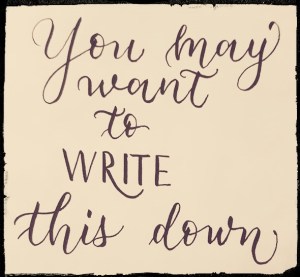 You may
want
to
WRITE
this down